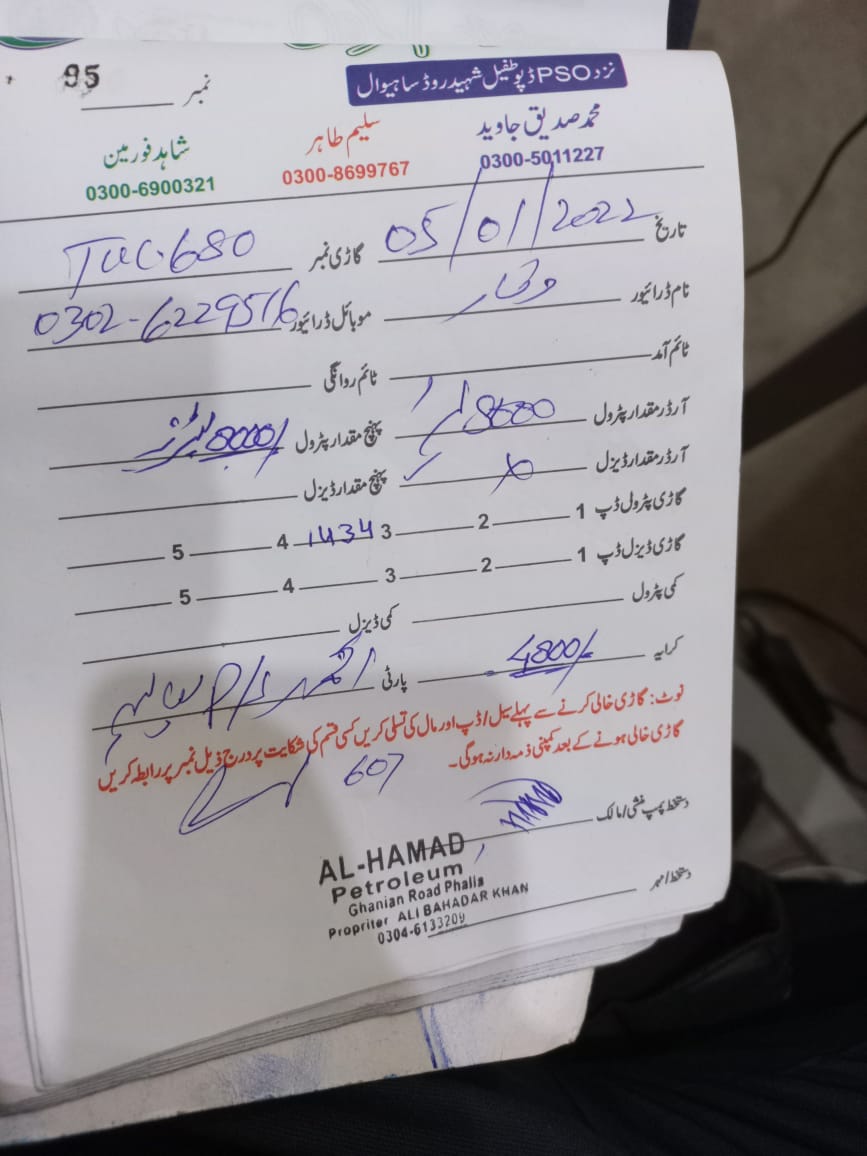 نزد PSO ڈپو طفیل شہید روڈ ساہیوال
نمبر 95
محمد صدیق جاوید سلیم طاہر شاہد فورمین
0300-5011227 0300-8699767 0300-6900321
تاریخ 05/01/2022 گاڑی نمبر TUC.680
نام ڈرائیور وقار موبائل ڈرائیور 0302-6229516
ٹائم آمد ٹائم روانگی
آرڈر مقدار پٹرول پہنچ مقدار پٹرول 8000/ لیٹرز
آرڈر مقدار ڈیزل پہنچ مقدار ڈیزل
گاڑی پٹرول ڈپ 1 2 3 1434 4 5
گاڑی ڈیزل ڈپ 1 2 3 4 5
کمی پٹرول کمی ڈیزل
کرایہ 4800/- پارٹی P/S
نوٹ: گاڑی خالی کرنے سے پہلے سیل/ڈپ اور مال کی تسلی کریں کسی قسم کی شکایت پر درج ذیل نمبر پر رابطہ کریں
گاڑی خالی ہونے کے بعد کمپنی ذمہ دار نہ ہوگی۔
607
دستخط پمپ منشی/مالک
دستخط/مہر
AL-HAMAD
Petroleum
Ghanian Road Phalia
Propriter ALI BAHADAR KHAN
0304-6133209